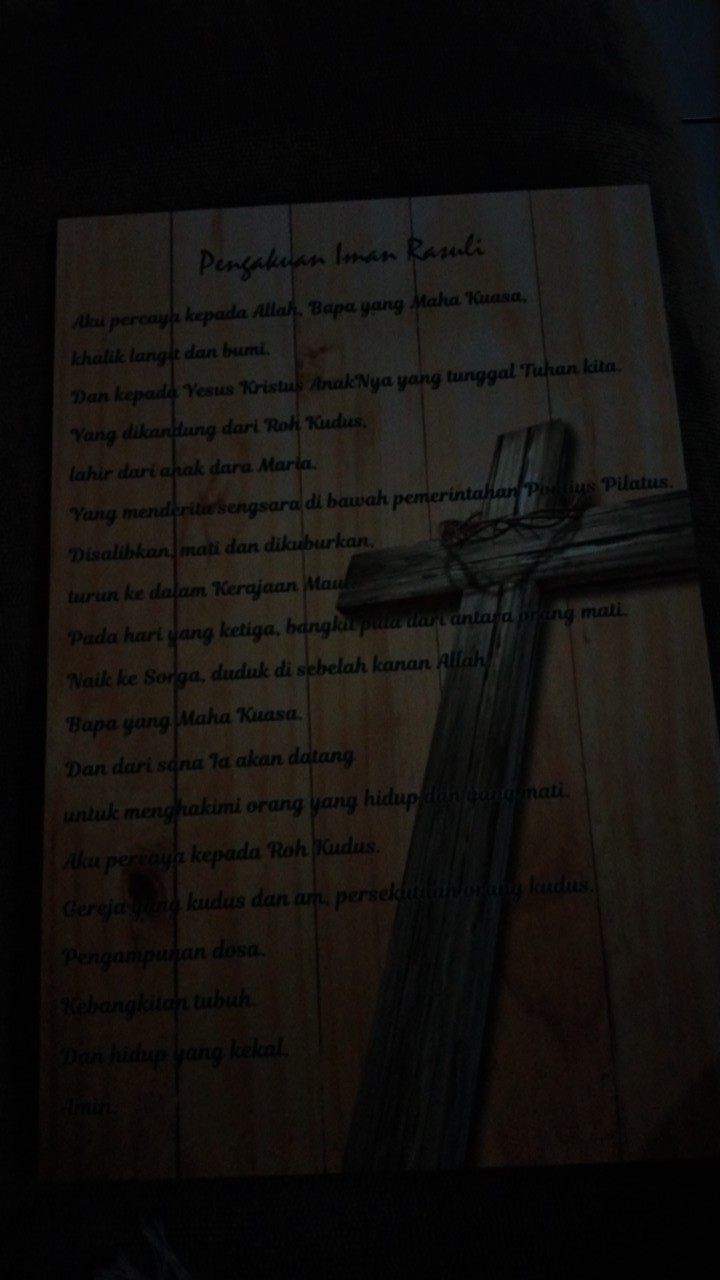 Pengakuan Iman Rasuli
Aku percaya kepada Allah, Bapa yang Maha Kuasa,
khalik langit dan bumi.
Dan kepada Yesus Kristus AnakNya yang tunggal Tuhan kita.
Yang dikandung dari Roh Kudus,
lahir dari anak dara Maria.
Yang menderita sengsara di bawah pemerintahan Pontius Pilatus.
Disalibkan, mati dan dikuburkan,
turun ke dalam Kerajaan Maut
Pada hari yang ketiga, bangkit pula dari antara orang mati.
Naik ke Sorga, duduk di sebelah kanan Allah
Bapa yang Maha Kuasa.
Dan dari sana Ia akan datang
untuk menghakimi orang yang hidup dan yang mati.
Aku percaya kepada Roh Kudus.
Gereja yang kudus dan am, persekutuan orang kudus.
Pengampunan dosa.
Kebangkitan tubuh.
Dan hidup yang kekal.
Amin.